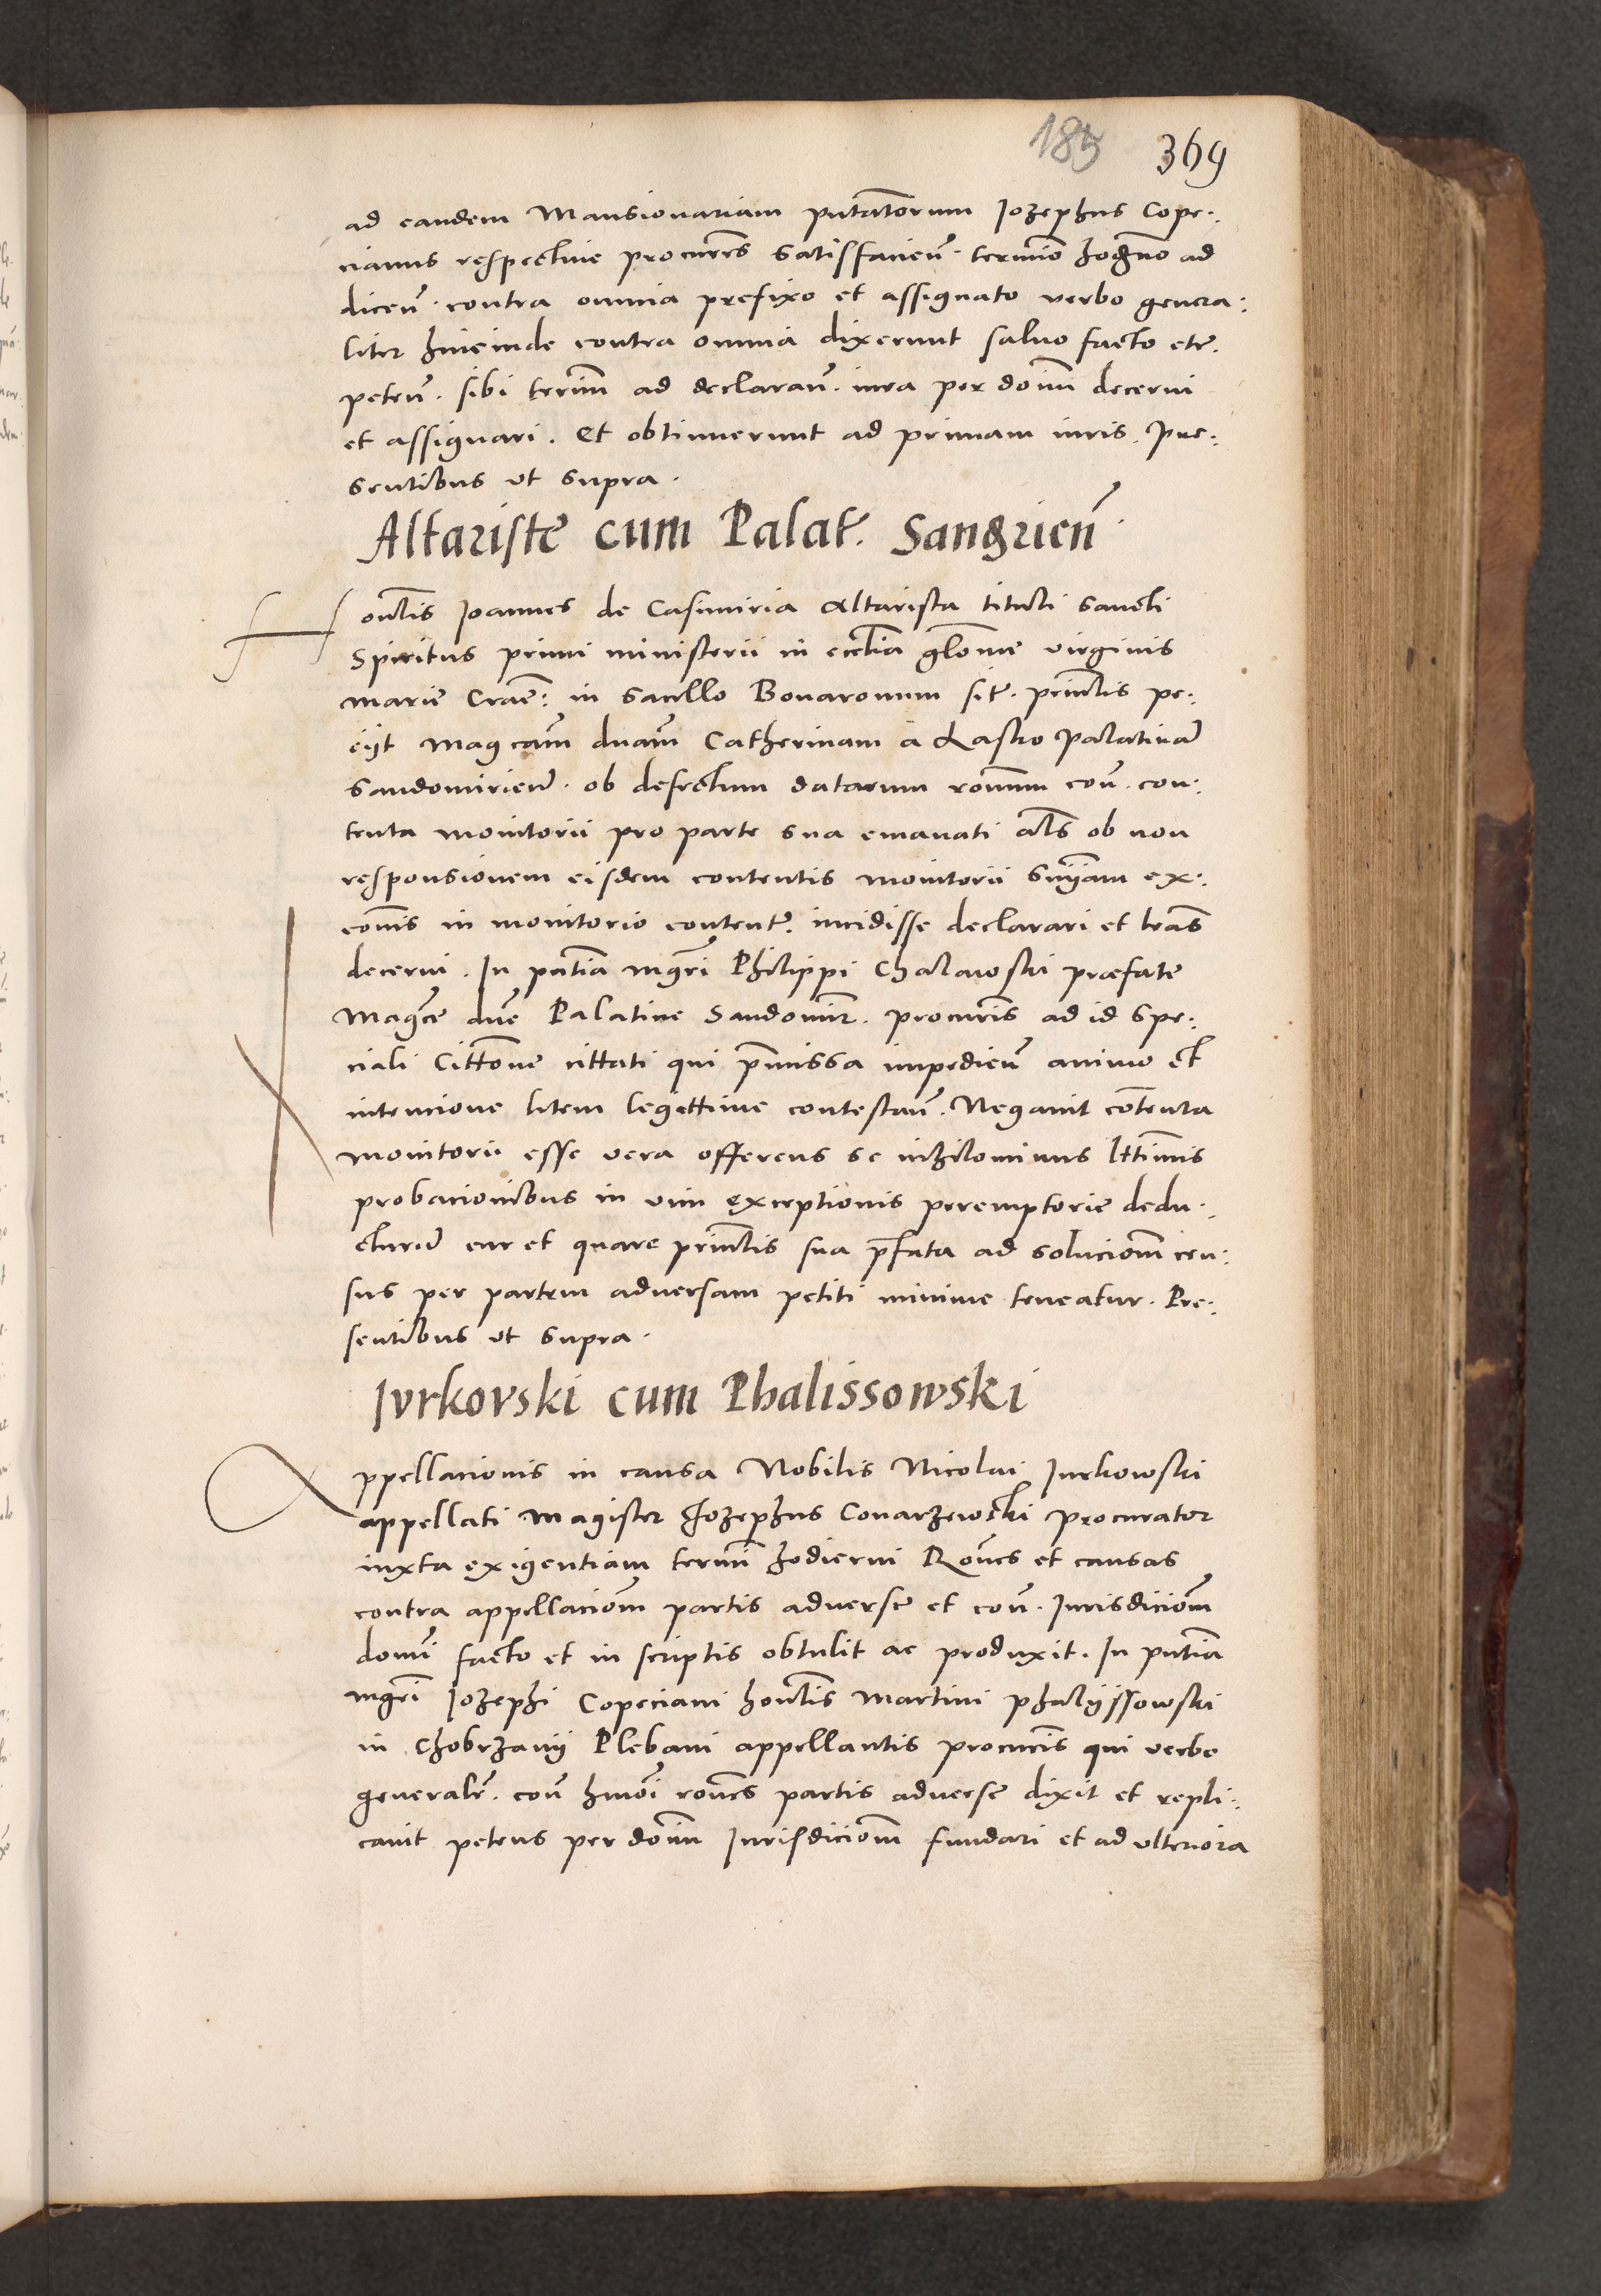 185 369
ad eandem Mansionariam putatorum Iozephus Cope:
cianus respective procurres satisfacien. termino hogno ad
dicen. contra omnia prefixo et assignato verbo genera:
liter hincinde contra omnia dixerunt salvo facto etc.
peten. sibi terim ad declaran. iura per domi decerni
et assignari. Et obtinuerunt ad primam iuris. Pre:
sentibus ut supra.
Altariste cum Palat. Sandrien
Hontlis Ioannes de Casimiria Altarista tituli sancti
Spiritus primi ministerii in ecclia glone virginis
marie Crac: in sacello Bonaronum sit. printlis pe:
ciit magcam dnam Catherinam a Lasko Palatinam
sandomirien. ob defectum datarum ronum con. con:
tenta monitorii pro parte sua emanati als ob non
responsionem eisdem contentis monitorii sniam ex:
conis in monitorio content. incidisse declarari et lras
decerni. In pntia mgri Philippi Chalawski præfate
Magce dne Palatine Sandomir. procuris ad id spe:
ciali Cittone cittati qui pmissa impedien animo et
intencione litem legittime contestan. Negavit contenta
monitorii esse vera offerens se nihilominus lttimis
probacionibus in vim exceptionis peremptorie dedu:
cturum cur et quare printlis sua pfata ad solucionem cen:
sus per partem adversam petiti minime teneatur. Pre:
sentibus ut supra.
Ivrkovski cum Phalissowski
Appellacionis in causa Nobilis Nicolai Iurkowski
appellati Magister Iozephus Conarzewski Procurator
iuxta exigentiam termi hodierni Rones et causas
contra appellacionem partis adverse et con. Iurisdicionem
domi facto et in scriptis obtulit ac produxit. In pntia
mgri Iozephi Copeciani hontlis Martini phalijssowski
in Chobrzanij Plebani appellantis procuris qui verbo
generalr. con hmoi rones partis adverse dixit et repli:
cavit petens per domi Iurisdicionem fundari et ad ulteriora